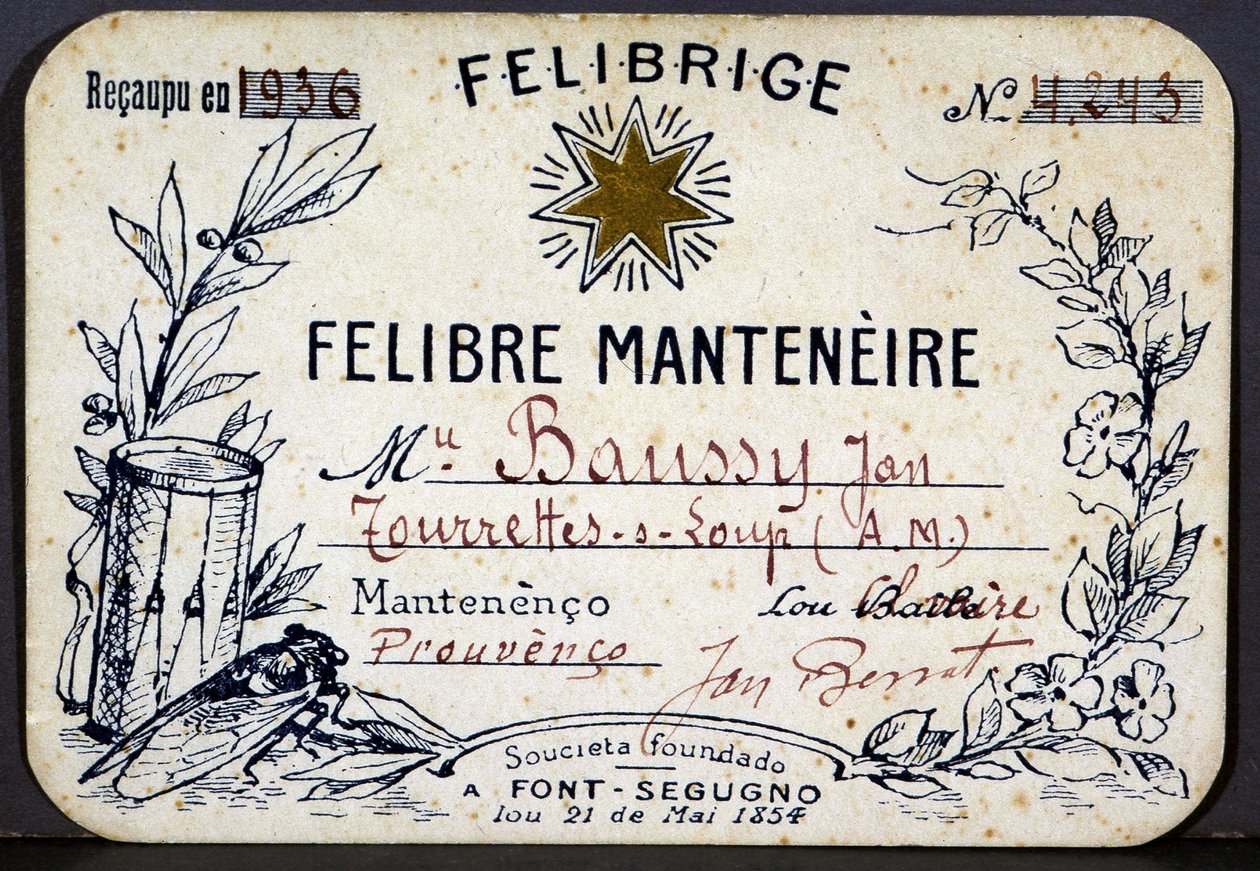 Reçaupu en 1936
F·E·L·I·B·R·I·G·E
Nº 4.243
FELIBRE MANTENÈIRE
Mu. Baussy Jan
Tourrettes-s-Loup (A.M.)
Mantenènço
Prouvènço
Lou
Jan
Soucieta foundado
A FONT-SEGUGNO
lou 21 de Mai 1854